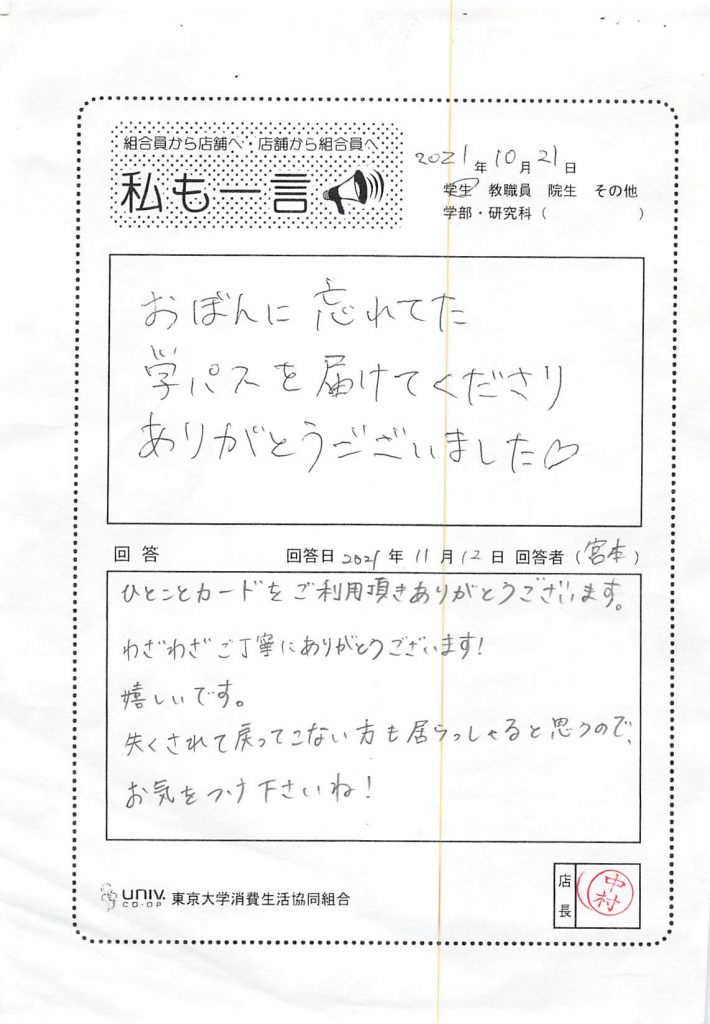 組合員から店舗へ・店舗から組合員へ
私も一言
2021年10月21日
学生 教職員 院生 その他
学部・研究科（ ）
おぼんに忘れてた
学パスを届けてくださり
ありがとうございました♡
回答 回答日2021年11月12日 回答者（宮本）
ひとことカードをご利用頂きありがとうございます。
わざわざご丁寧にありがとうございます!
嬉しいです。
失くされて戻ってこない方も居らっしゃると思うので、
お気をつけ下さいね!
UNIV. CO-OP 東京大学消費生活協同組合
店長 中村